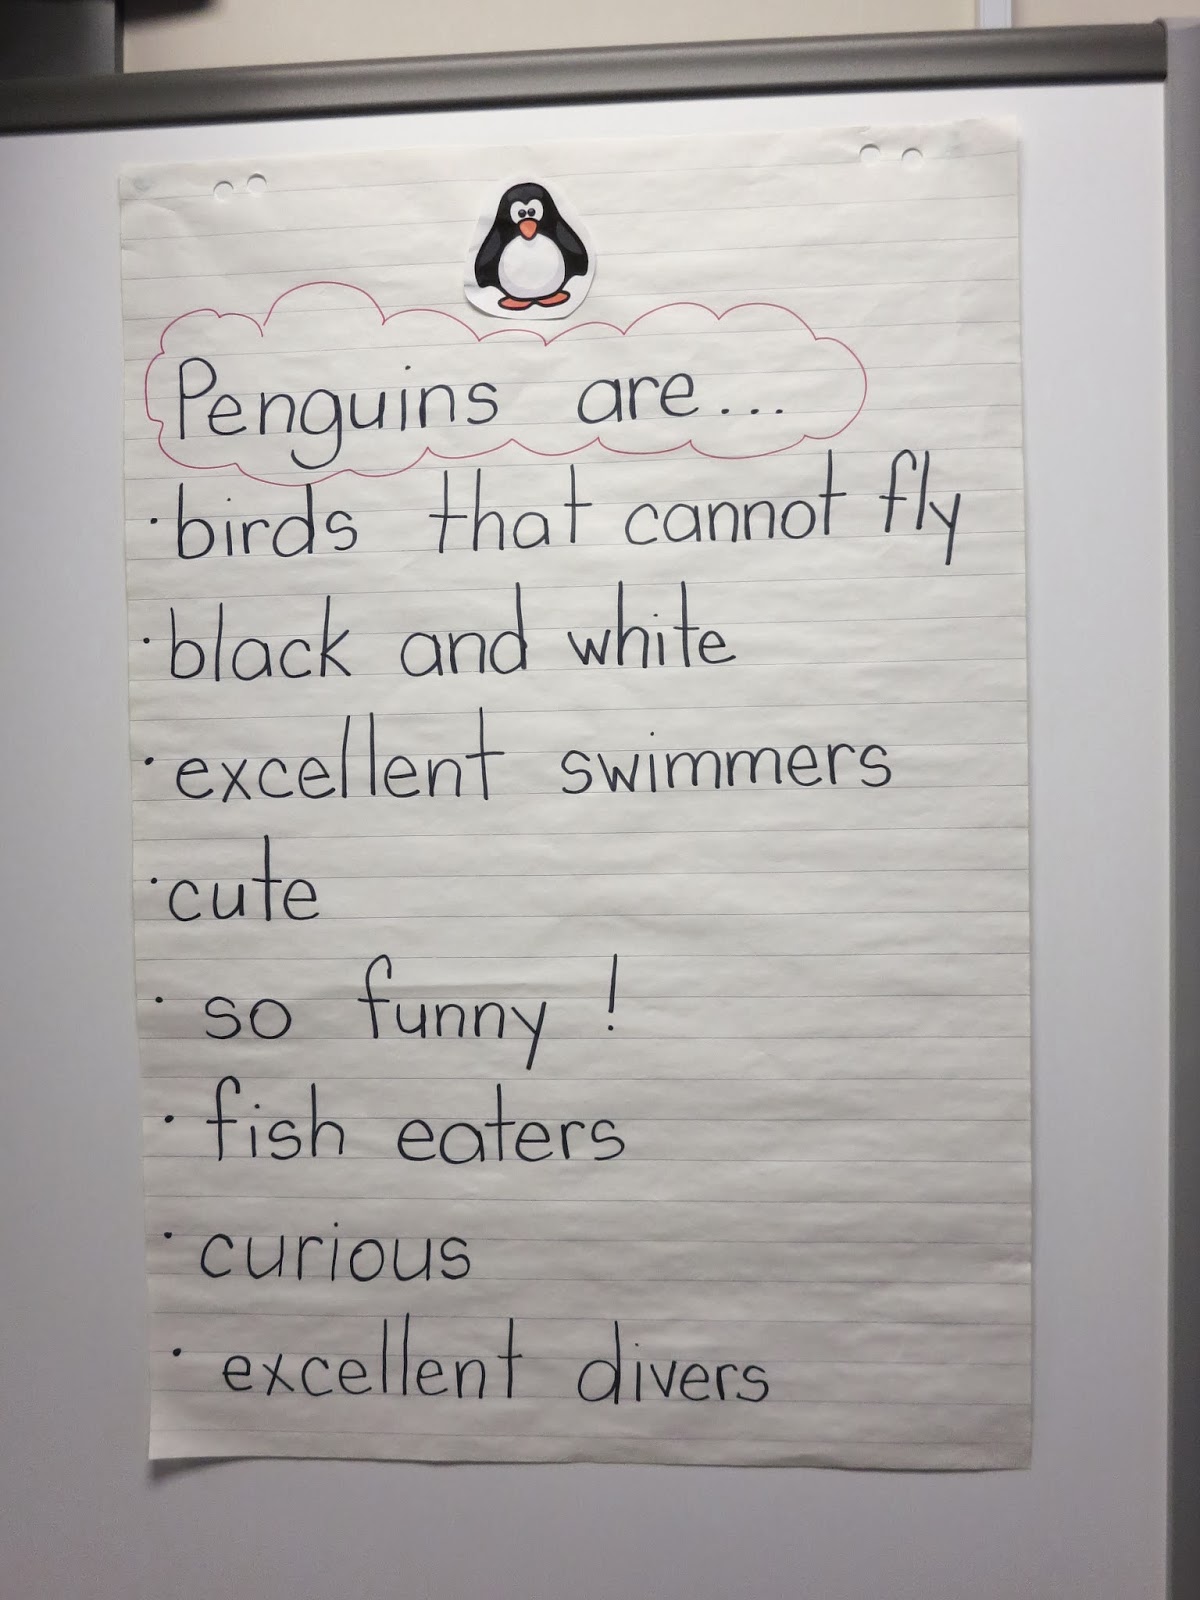 Penguins are...
·birds that cannot fly
·black and white
·excellent swimmers
·cute
· so funny !
· fish eaters
·curious
· excellent divers